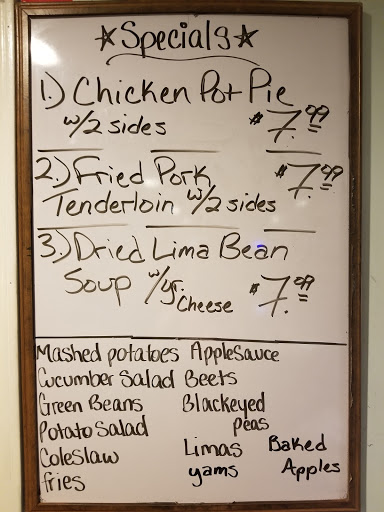 ★Specials★
1.) Chicken Pot Pie
w/2 sides $7.99
2.) Fried Pork $7.99
Tenderloin w/2 sides
3.) Dried Lima Bean
Soup w/gr. Cheese $7.99
Mashed potatoes Applesauce
Cucumber Salad Beets
Green Beans Blackeyed
Potato Salad peas
Coleslaw Limas Baked
fries yams Apples